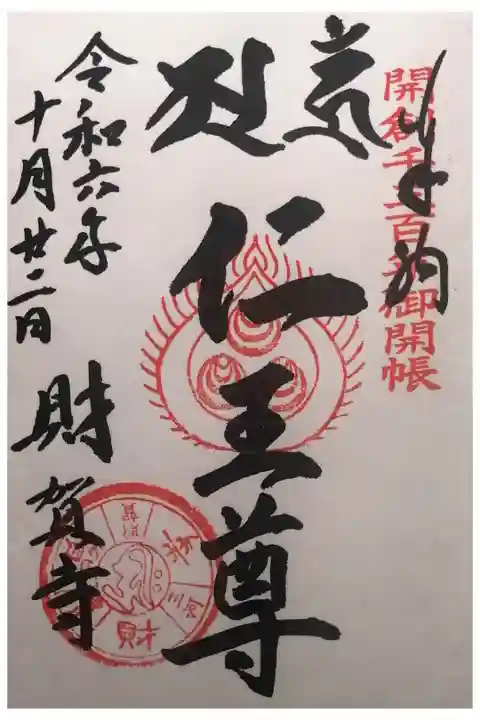 開創千三百年御開帳
奉拝
仁王尊
令和六年
十月廿二日
財賀寺
財